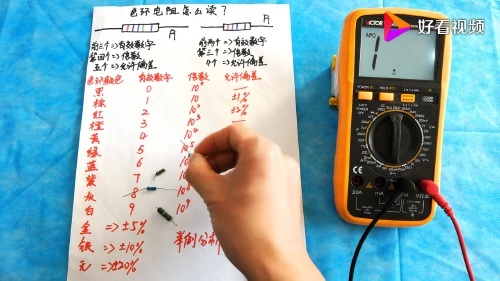 色环电阻怎么读？
前三个=>有效数字
第四个=>倍数
五个=>允许偏差
前两个=>有效数字
第三个=>倍数
4个=>允许偏差
色环颜色 有效数字 倍数 允许偏差
黑 0 10⁰ —
棕 1 10¹ ±1%
红 2 10² ±2%
橙 3 10³ —
黄 4 10⁴
绿 5 10⁵
蓝 6
紫 7
灰 8 10⁸
白 9 10⁹
金 => ±5%
银 => ±10%
无 => ±20%
举例分析
好看视频
VICTOR
APO
1
20A mA COM VΩ